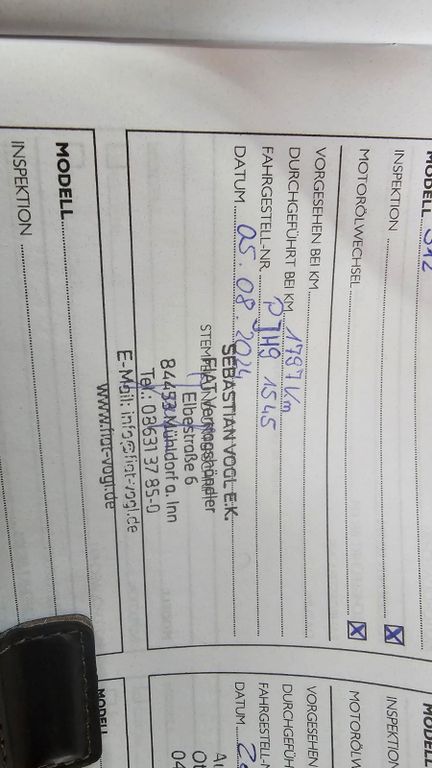 MODELL 312
INSPEKTION
MOTORÖLWECHSEL
VORGESEHEN BEI KM
DURCHGEFÜHRT BEI KM 1787 Km
FAHRGESTELL-NR. PJH9 1545
DATUM 05.08.2024
SEBASTIAN VOGL E.K.
FIAT Vertragshändler
Elbestraße 6
84453 Mühldorf a. Inn
Tel.: 08631 37 85-0
E-Mail: info@fiat-vogl.de
www.fiat-vogl.de
MODELL
INSPEKTION
MODELL
INSPEKTION
MOTORÖLW
VORGESEHEN
DURCHGEFÜH
FAHRGESTELL-N
DATUM
MODELL